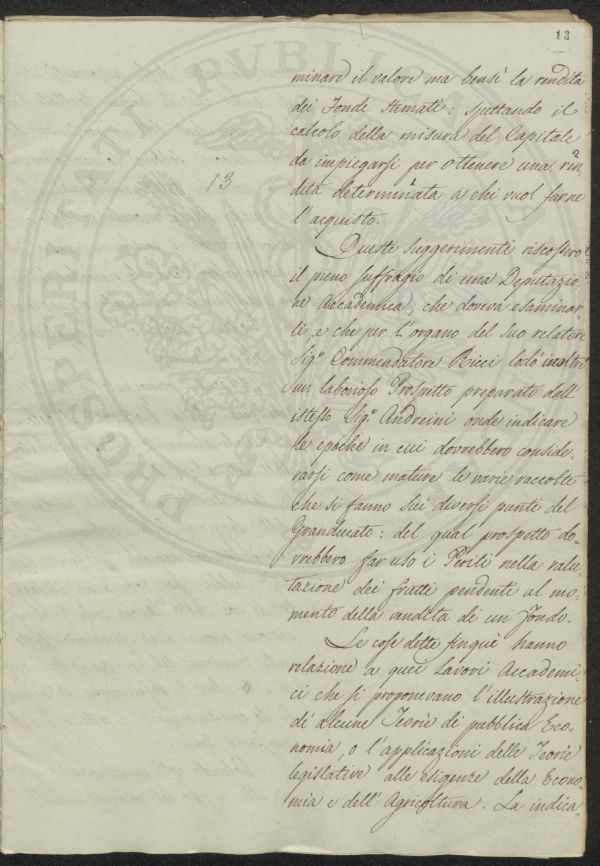 13
13
minare il valore ma bensì la rendita
dei Fondi stimati: spettando il
calcolo della misura del Capitale
da impiegarsi per ottenere una ren
dita determinata a chi vuol farne
l'acquisto.
Questi suggerimenti riscossero
il pieno suffragio di una Deputazio-
ne Accademica, che doveva esaminar-
li, e che per l'organo del suo relatore
Sig.e Commendatore Ricci lodò inoltre
un laborioso Prospetto preparato dall'
istesso Sig.e Andreini onde indicare
le epoche in cui dovrebbero conside-
rarsi come mature le varie raccolte
che si fanno sui diversi punti del
Granducato: del qual prospetto do-
vrebbero far uso i Periti nella valu-
tazione dei frutti pendenti al mo-
mento della vendita di un Fondo.
Le cose dette finquì hanno
relazione a quei Lavori Accademi-
ci che si proponevano l'illustrazione
di alcune Teorie di pubblica Eco-
nomia, o l'applicazioni delle Teorie
legislative alle esigenze della Econo-
mia e dell'Agricoltura. La indica-
PROSPERITATI PVBLICAE